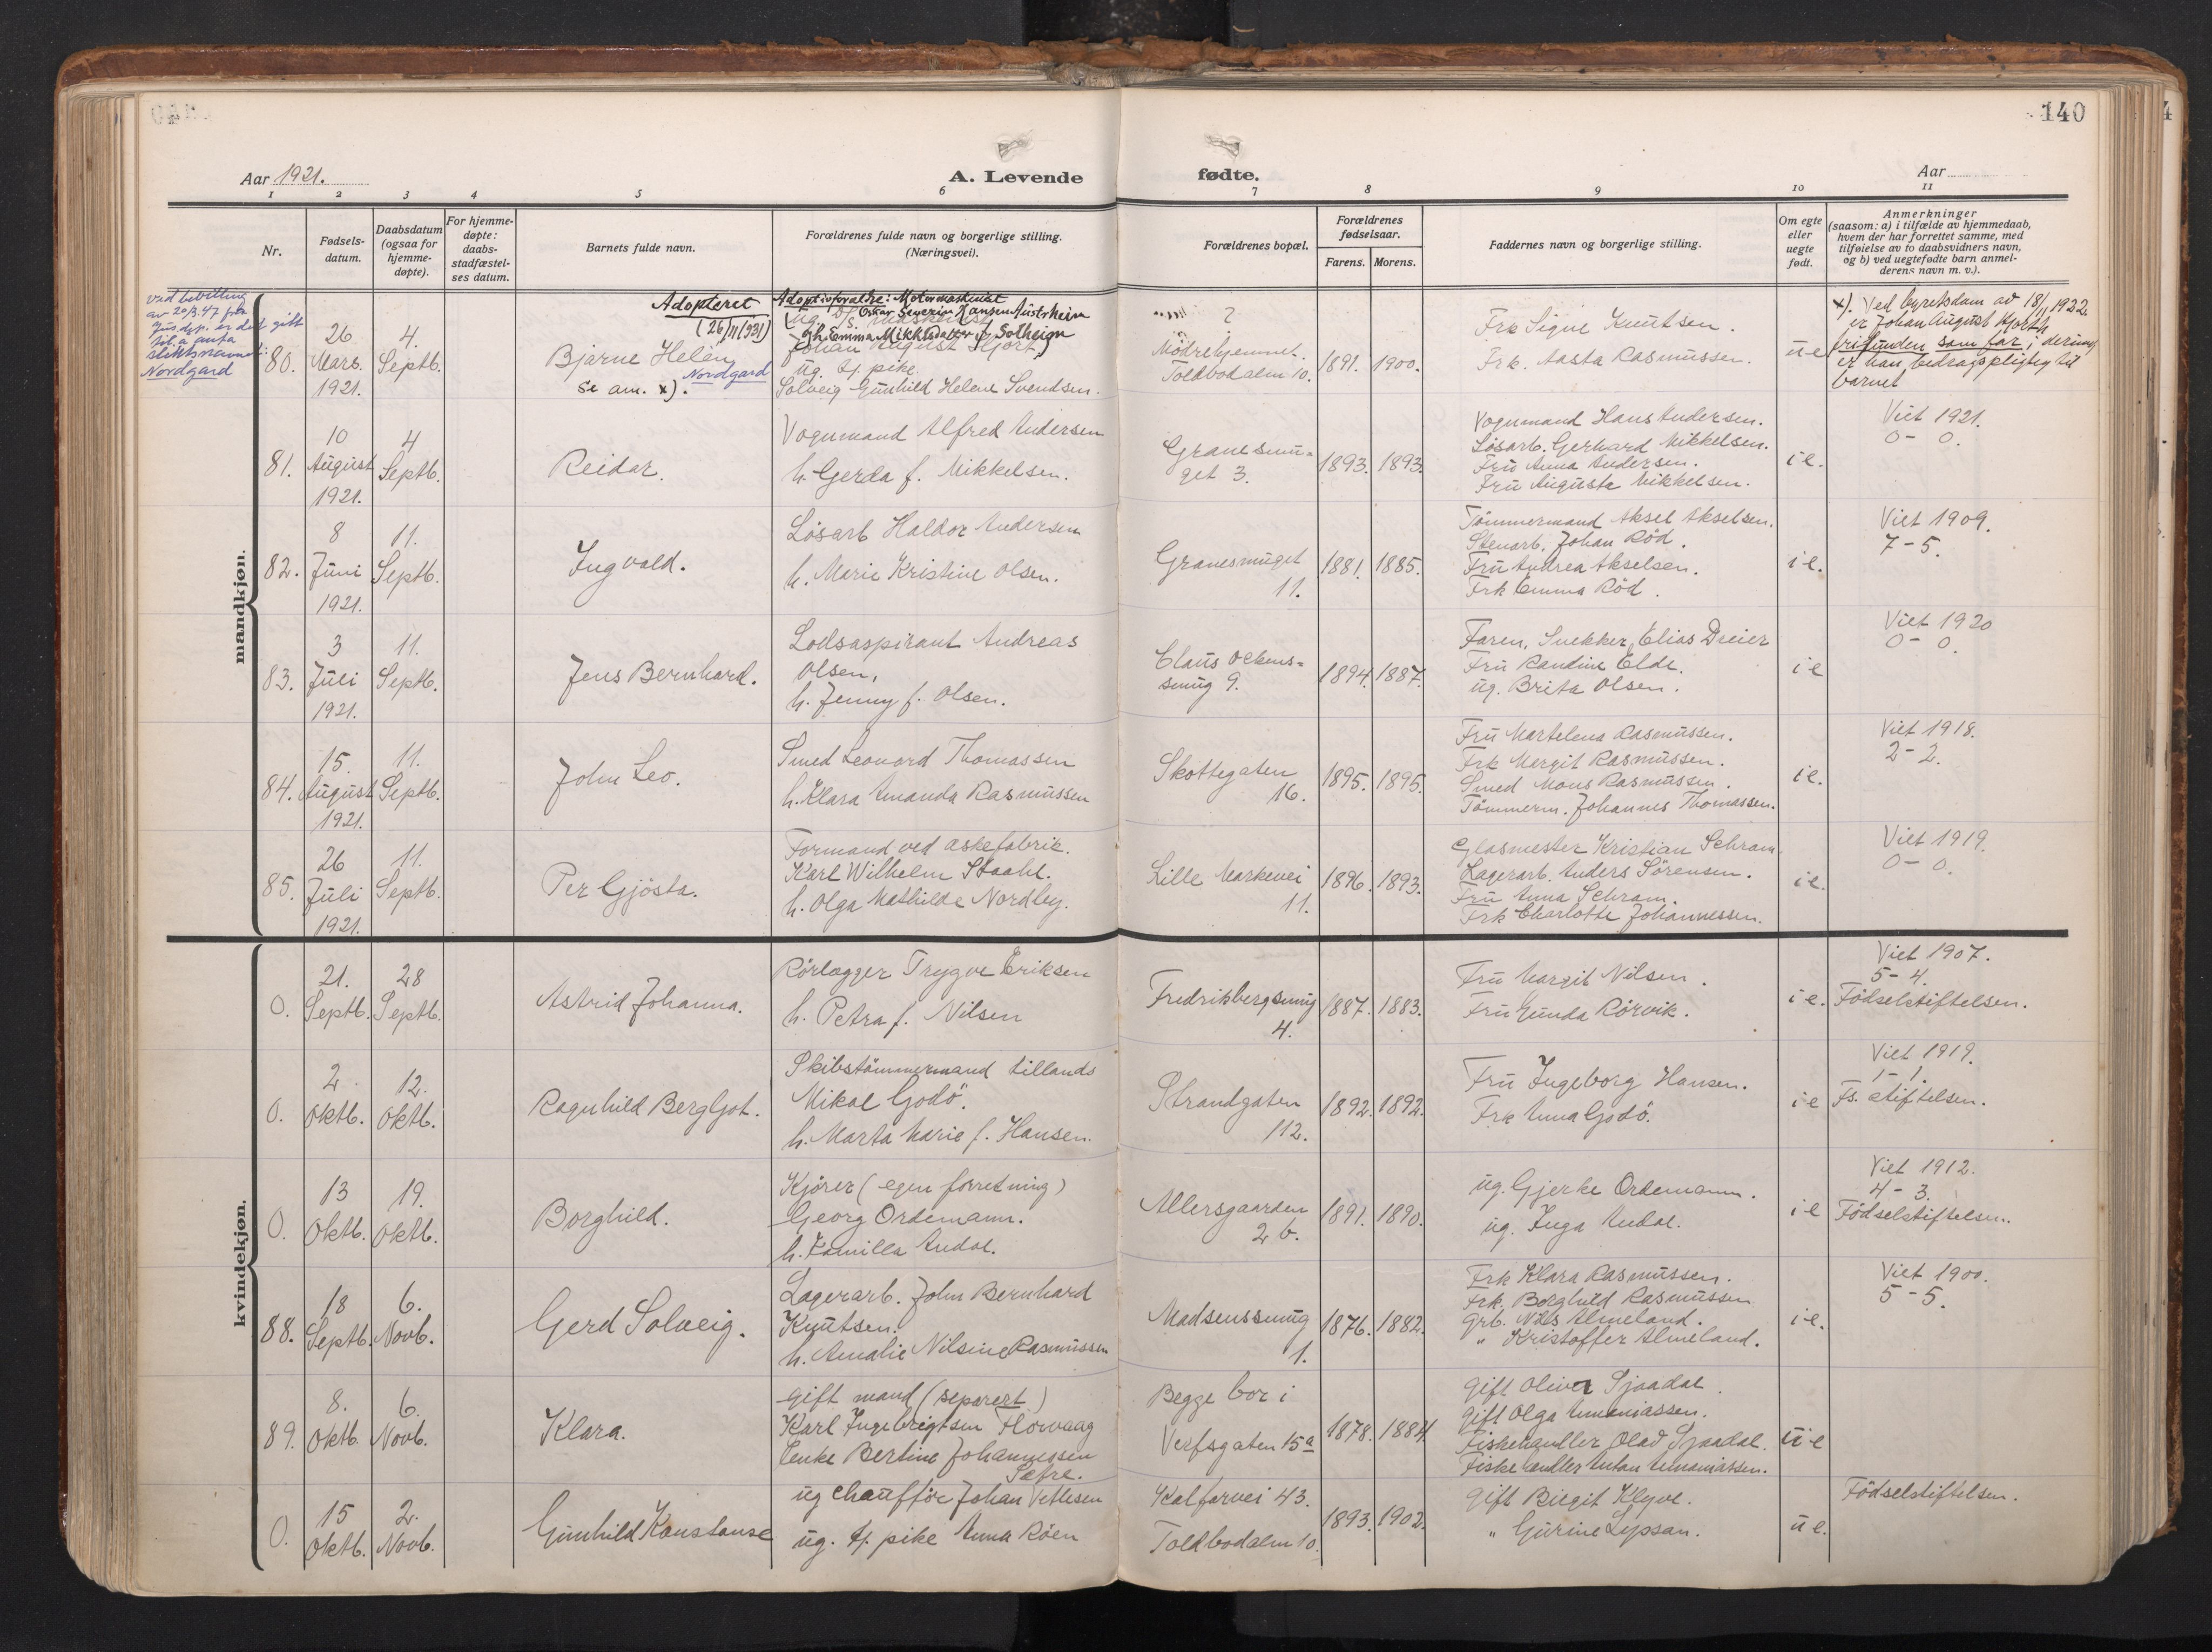 140
Aar 1921.
A. Levende fødte.
Aar
1 2 3 4 5 6 7 8 9 10 11
Nr.
Fødsels-
datum.
Daabsdatum
(ogsaa for
hjemme-
døpte).
For hjemme-
døpte:
daabs-
stadfæstel-
ses datum.
Barnets fulde navn.
Forældrenes fulde navn og borgerlige stilling.
(Næringsvei).
Forældrenes bopæl.
Forældrenes
fødselsaar.
Farens. Morens.
Faddernes navn og borgerlige stilling.
Om egte
eller
uegte
født.
Anmerkninger
(saasom: a) i tilfælde av hjemmedaab,
hvem der har forrettet samme, med
tilføielse av to daabsvidners navn,
og b) ved uegtefødte barn anmel-
derens navn m. v.).
mandkjøn.
Ved bevilling
av 20/3.47 fra
Jus.dep. er det gitt
till. a anta
slektsnavnet:
Nordgard
80.
26
Mars.
1921.
4.
Septb.
Adopteret
(26/11 1931)
Bjarne Helén
Nordgard
se am. x).
Adoptivforældre: Motormaskinist
Oscar Severin Hansen Austrheim
h. Emma Mikkldazen f. Solheim
Johan August Hjort,
ug. tj. pike
Solveig Gunhild Helene Svendsen.
?
Mødrehjemmet.
Toldbodalm 10.
1891. 1900.
Frk Signe Knutsen.
Frk. Aasta Rasmussen.
u e
x). Ved byretsdom av 18/1 1922
er Johan August Hjorth
frifunden som far; derimot
er han bidragspligtig til
barnet
81.
10
August
1921.
4
Septb.
Reidar.
Vognmand Alfred Andersen
h. Gerda f. Mikkelsen.
Granesmu-
get 3.
1893. 1893.
Vognmand Hans Andersen.
Løsarb. Gerhard Mikkelsen.
Fru Anna Andersen.
Fru Augusta Mikkelsen.
i e.
Viet 1921.
0 - 0.
82.
8
Juni
1921.
11.
Septb.
Ingvald.
Løsarb Haldor Andersen
h. Marie Kristine Olsen.
Granesmuget
11.
1881. 1885.
Tømmermand Aksel Akselsen.
Stenarb. Johan Rød.
Fru Andrea Akselsen.
Frk Emma Rød.
i e.
Viet 1909.
7 - 5.
83.
3
Juli
1921.
11.
Septb.
Jens Bernhard.
Lodsaspirant Andreas
Olsen,
h. Jenny f. Olsen.
Claus Ockens-
smug 9.
1894. 1887.
Faren, Snekker, Elias Dreier
Fru Randine Elde.
ug. Brita Olsen.
i e
Viet 1920
0 - 0.
84.
15.
August
1921.
11.
Septb.
John Leo.
Smed Leonard Thomassen
h. Klara Amanda Rasmussen
Skottegaten
16.
1895. 1895.
Fru Martelena Rasmussen.
Frk Mergit Rasmussen.
Smed Mons Rasmussen.
Tømmerm. Johannes Thomassen.
i e.
Viet 1918.
2 - 2.
85.
26
Juli
1921.
11.
Septb.
Per Gjøsta.
Formand ved æskefabrik.
Karl Wilhelm Staahl.
h. Olga Mathilde Nordby.
Lille Markevei
11.
1896. 1893.
Glasmester Kristian Schram
Lagerarb. Anders Sørensen.
Fru Anna Schram.
Frk Charlotte Johannessen.
i e.
Viet 1919.
0 - 0.
kvindekjøn.
0.
21.
Septb.
28
Septb.
Astrid Johanna.
Rørlægger Trygve Eriksen
h. Petra f. Nilsen
Fredriksbergsmug
4.
1887. 1883.
Fru Margit Nilsen.
Fru Gunda Rørvik.
i e.
Viet 1907.
5 - 4.
Fødselstiftelsen.
0.
2
Oktb.
12.
Oktb.
Ragnhild Bergljot.
Skibstømmermand tillands
Mikal Godø.
h. Marta Marie f. Hansen.
Strandgaten
112.
1892. 1892.
Fru Ingeborg Hansen.
Frk Anna Godø.
i e
Viet 1919.
1 - 1.
Fs. stiftelsen.
0.
13
Oktb.
19.
Oktb.
Borghild.
Kjører (egen forretning)
Georg Ordemann.
h. Kamilla Andal.
Allersgaarden
2 b.
1891. 1890.
ug. Gjerke Ordemann.
ug. Inga Andal.
i e
Viet 1912.
4 - 3.
Fødselstiftelsen.
88.
18
Septb.
6.
Novb.
Gerd Solveig.
Lagerarb. John Bernhard
Knutsen.
h. Amalie Nilsine Rasmussen
Madsenssmug
1.
1876. 1882.
Frk Klara Rasmussen.
Frk. Borghild Rasmussen
Grb. Nils Almeland.
" Kristoffer Almeland.
i e.
Viet 1900.
5 - 5.
89.
8.
Oktb.
6.
Novb.
Klara.
Gift mand (separert)
Karl Ingebrigtsen Florvaag
Enke Bertine Johannessen
Sæfre.
Begge bor i
Verfsgaten 15a
1878. 1884.
Gift Oliver Sjaadal.
Gift Olga Ananiassen.
Fiskehandler Olav Sjaadal.
Fiskehandler Anton Ananiassen.
u e
0.
15
Oktb.
2.
Novb.
Gunhild Konstanse
ug chauffør Johan Vetlesen
ug. tj. pike Anna Röen
Kalfarvei 43.
Toldbodalm 10.
1893. 1902.
Gift Birgit Klyve.
" Gurine Lypsan.
u e.
Fødselstiftelsen.